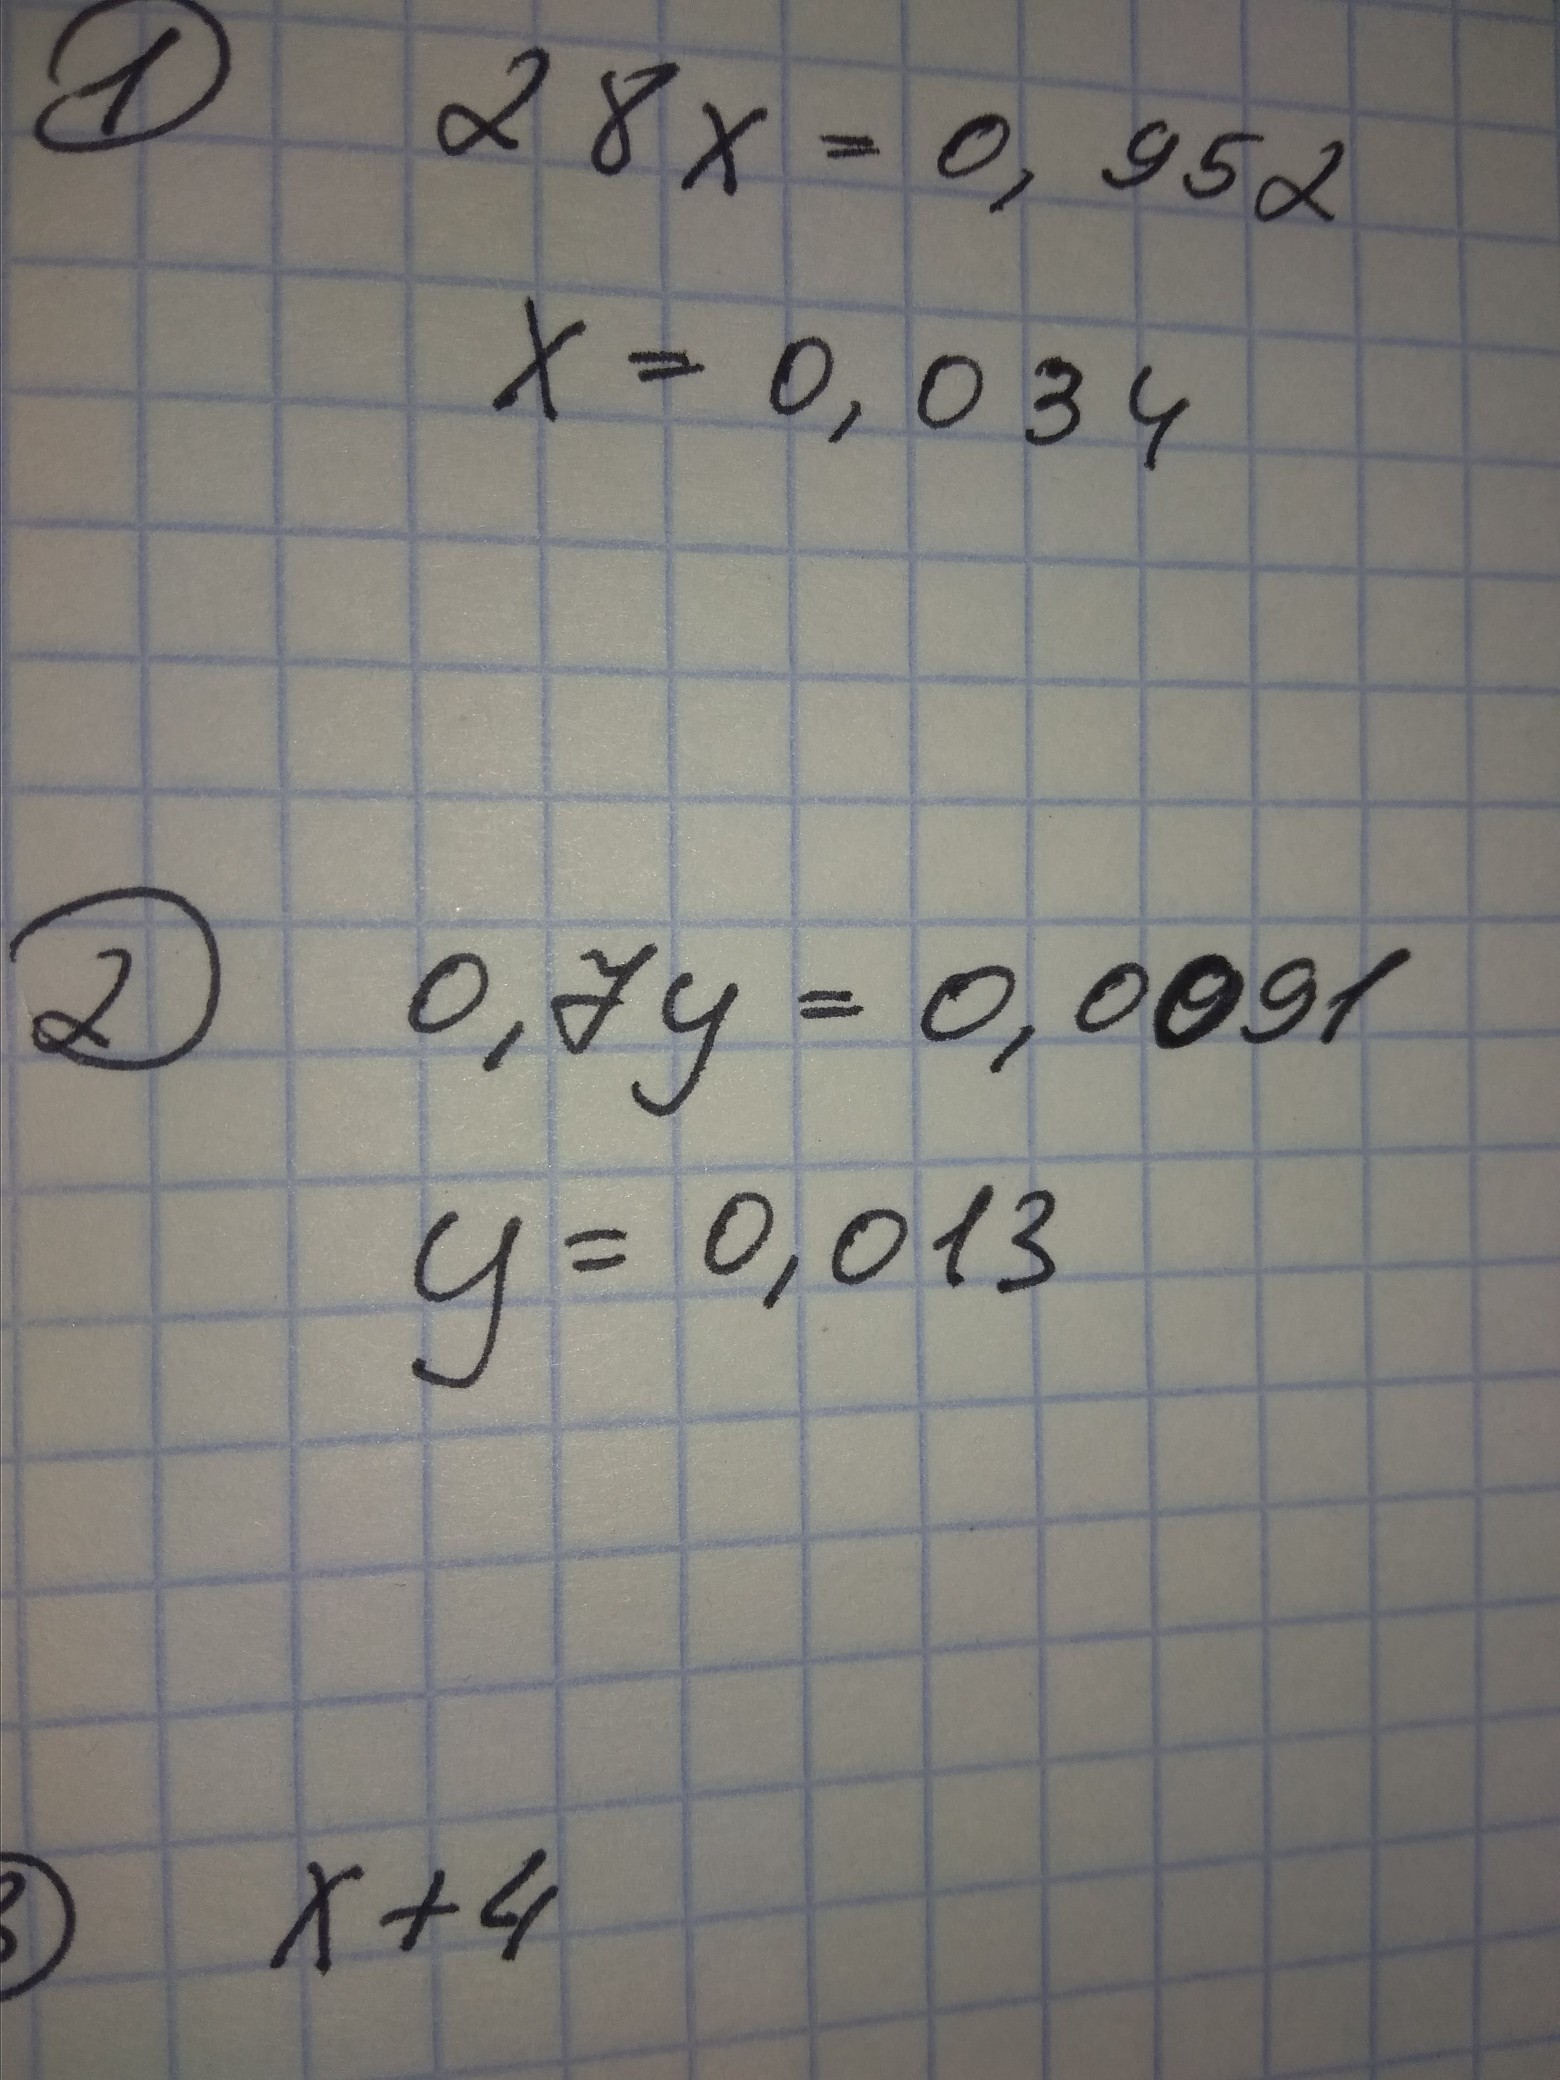 1 28x = 0,952
x = 0,034
2 0,7y = 0,0091
y = 0,013
3 x + 4